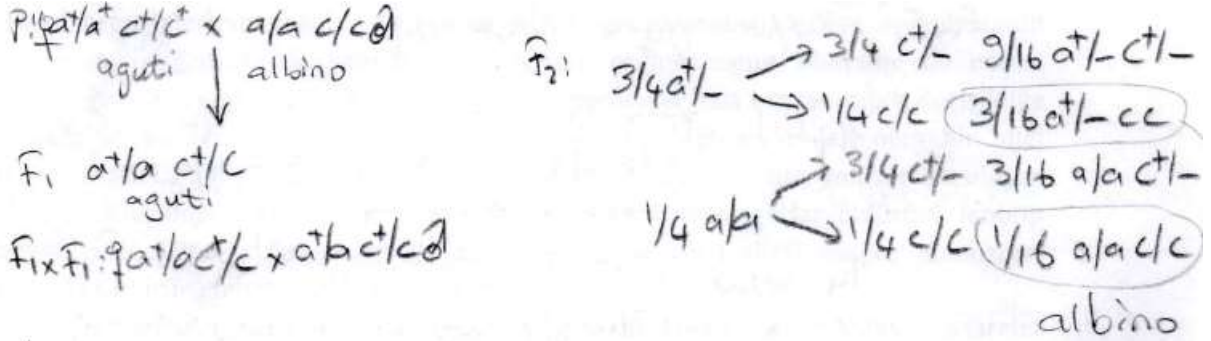 P: ♀a⁺/a⁺ c⁺/c⁺ x a/a c/c ♂
aguti albino
F₁ a⁺/a c⁺/c
aguti
F₁xF₁: ♀a⁺/a c⁺/c x a⁺/a c⁺/c ♂
F₂:
3/4 a⁺/-
3/4 c⁺/- 9/16 a⁺/- c⁺/-
1/4 c/c 3/16 a⁺/- cc
1/4 a/a
3/4 c⁺/- 3/16 a/a c⁺/-
1/4 c/c 1/16 a/a c/c
albino